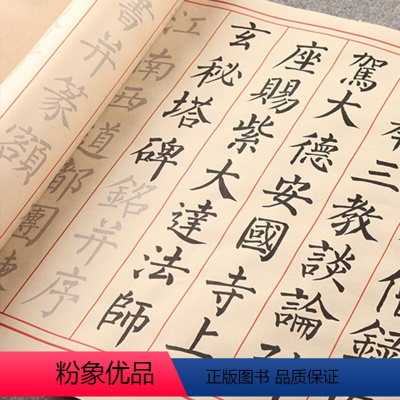 僧錄
三教談論引
駕大德安國寺上
座賜紫大達法師
玄秘塔碑銘并序
江南西道都團練
書并篆額
粉象优品
正版图书 品质保证